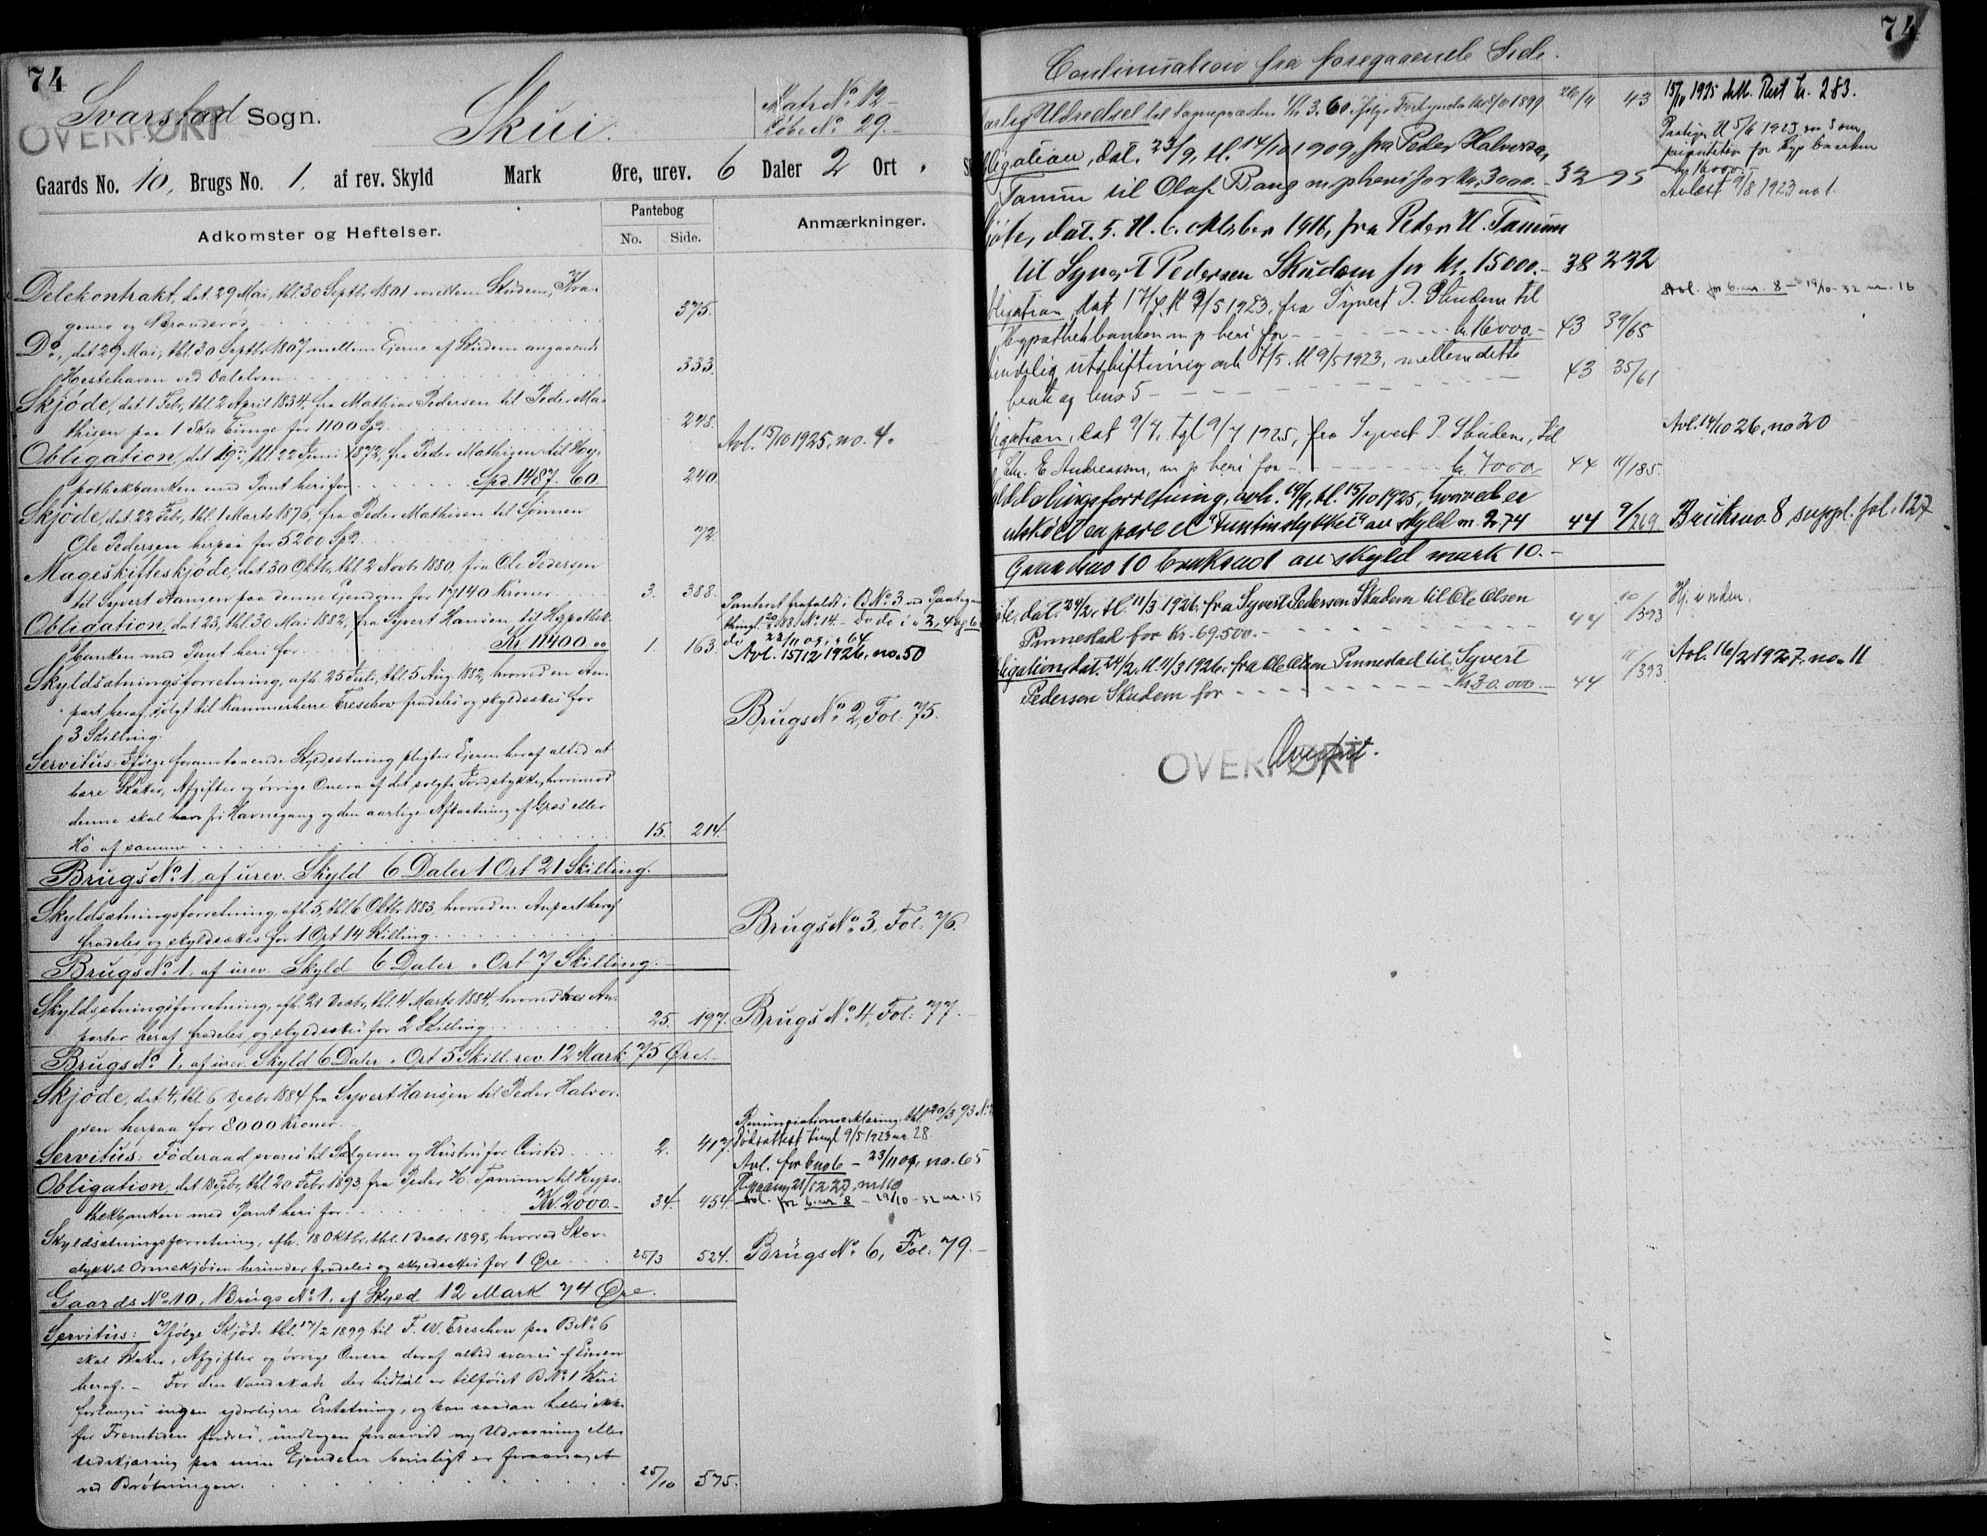 74
Svarstad Sogn.
OVERFØRT
Skui.
Matr No. 12 -
Løbe No. 29. -
Gaards No. 10, Brugs No. 1. af rev. Skyld Mark Øre, urev. 6 Daler 2 Ort
Adkomster og Heftelser.
Pantebog
No. Side.
Anmærkninger.
Delekontrakt, dat. 29 Mai, thl. 30 Septbr 1801 mellem Skudem, Kra-
375.
Do, dat 29 Mai, thl. 30 Septbr 1807 mellem Eierne af Skudem angaaende
Hestehaven ved Dalelven
333.
Skjøde, dat 1 Febr, thl. 2 April 1834, fra Mathias Pedersen til Peder Ma-
thisen paa 1 Skd Tunge for 1100 Spd
248.
Obligation, dat 19, thl 22 Juni 1872, fra Peder Mathisen til Hy-
pothekbanken med Pant heri for Spd. 1487. 60.
240.
Avl. 15/10 1925, no. 4.
Skjøde, dat. 22 Febr, thl. 1 Marts 1876, fra Peder Mathisen til Sønnen
Ole Pedersen herpaa for 5200 Spd.
72
Mageskifteskjøde, dat 30 Oktbr, thl 2 Novbr 1880, fra Ole Pedersen
til Syvert Hansen paa denne Eiendom for 17140 Kroner
3. 388.
Obligation, dat 23, thl. 30 Mai 1882, fra Syvert Hansen, til Hypothek-
banken med Pant heri for Kr. 11400.00
1 163
Panteret frafaldt i B No. 3 ved Paategn.
Avl. 15/12 1926, no. 50
Skyldsætningsforretning, afh. 25 Juli, thl. 5 Aug. 1882, hvorved en An-
part heraf, solgt til Kammerherre Treschow fradeles og skyldsættes for
3 Skilling.
Brugs No. 2, Fol. 75.
Servitus: Ifølge foranstaaende Skyldsætning pligter Eieren heraf altid at
bære Skatter, Afgifter og øvrige Onera af det solgte Jordstykke, hvorimod
denne skal have fri Havnegang og den aarlige Afkastning af Græs eller
Hø af samme
15. 214.
Brugs No. 1, af urev. Skyld 6 Daler 1 Ort 21 Skilling.
Skyldsætningsforretning, afh. 5, thl. 6 Oktbr 1883, hvorved en Anpart heraf
fradeles og skyldsættes for 1 Ort 14 Skilling
Brugs No. 3, Fol. 76.
Brugs No. 1, af urev. Skyld 6 Daler " Ort 7 Skilling.
Skyldsætningsforretning, afh. 21 Decbr, thl. 4 Marts 1884, hvorved An-
parter heraf fradeles, og skyldsættes for 2 Skilling
25. 197.
Brugs No. 4, Fol. 77.
Brugs No. 1, af urev. Skyld 6 Daler " Ort 5 Skill. rev. 12 Mark 75 Øre.
Skjøde, dat 4, thl. 6 Decbr 1884 fra Syvert Hansen til Peder Halvor-
sen herpaa for 8000 Kroner.
Servitus: Føderaad svares til Sælgeren og Hustru for Livstid
2. 417.
Avl. for bno 6 - 23/11 09, no. 65
Obligation, dat 18 Febr, thl 20 Febr 1893, fra Peder H. Tamun til Hypo-
thekbanken med Pant heri for Kr. 2000.-
34. 454.
Avl. for b.nr. 8 - 19/10-32 nr. 15
Skyldsætningsforretning, afh. 18 Oktbr, thl. 1 Decbr 1898, hvorved Skov-
stykket Ormekjøsen herunder fradeles og skyldsættes for 1 Øre
25/3 524.
Brugs No. 6, Fol. 79.-
Gaards No. 10, Brugs No. 1, af Skyld 12 Mark 74 Øre.
Servitus: Ifølge Skjøde thl. 17/2 1899 til F. W. Treschow paa B No. 6
skal Skatter, Afgifter og øvrige Onera deraf altid svares af Eieren
heraf. - For den Vandskade der hidtil er tilføiet B No. 1 Skui
forlanges ingen yderligere Erstatning, og kan saadan heller ikke
for Fremtiden fordres, undtagen forsaavidt ny Udrasning eller
Udskjæring paa min Eiendom bevisligt er foraarsaget
ved Brøtningen.
25/10 575.
74
Continuation fra foregaaende Side.
aarlig Udredsel til Sognepræsten Kr. 3.60 ifølge Forkyndelse 1899
26/4 43
15/10 1925 dell. Rest kr. 283.
bligation, dat. 23/9, tl. 14/10 1909, fra Peder Halvorsen
Tamun til Olaf Bang m. p heri for Kr. 3000.-
32 95
Avlest 9/8 1923 no 1.
jøte, dat. 5. tl. 6. oktober 1916, fra Peder H. Tamum
til Syvert Pedersen Skudem for kr. 15000.-
38 232
bligation, dat 17/4 tl 9/5 1923, fra Syvert P. Skudem til
Hypothekbanken m p heri for kr. 16000.-
43 39/65
Avl. for b.nr. 8 - 19/10-32 nr. 16
indelig utskiftning avh 7/5. tl 9/5 1923, mellem dette
bruk og bno 5
43 35/61
igation, dat 9/4, tgl 9/4 1925, fra Syvert P. Skudem, til
Chr. E Andreassen, m p heri for kr. 7000
44 11/185
Avl. 14/10 26, no 20
kyldelingsforretning, avh. 19/9, tl. 15/10 1925, hvorved er
utskilt en parcel "Tuntinstykket" av skyld m. 2.74
44 9/269
Bruksno. 8, suppl. fol. 127
Gaardsno 10 bruksno 1 av skyld mark 10.-
øte, dat. 24/2, tl. 11/3 1926, fra Syvert Pedersen Skudem til Ole Olsen
Pinnestad for Kr. 69.500.-
44 10/393
Hj. under.
ligation, dat. 24/2, tl. 11/3 1926, fra Ole Olsen Pinnestad til Syvert
Pedersen Skudem for Kr. 30.000.-
44 11/393
Avl. 16/2 1927, no. 11
Overført.
OVERFØRT